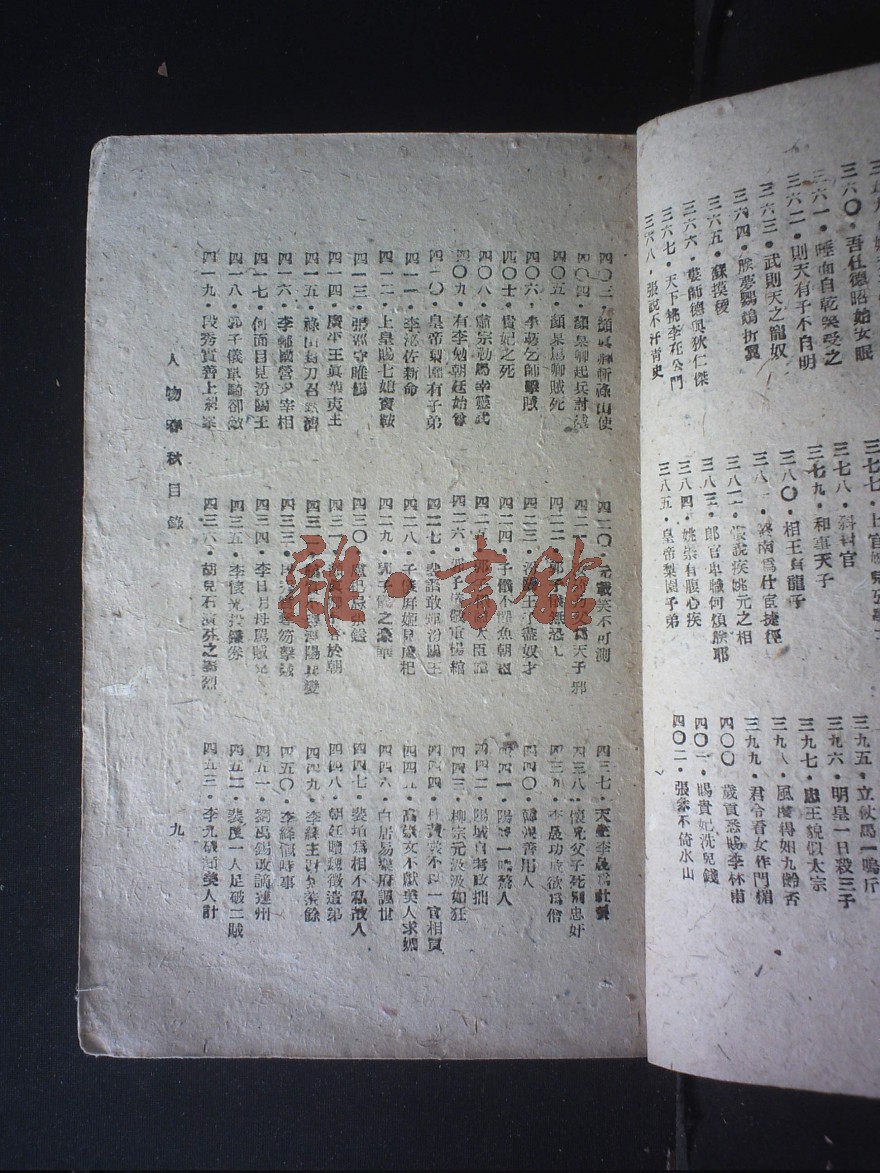 三六〇・吾杜德昭始女眠
三六一・唾面自乾笑受之
三六二・則天有子不自明
三六三・武則天之寵奴
三六四・朕夢鸚鵡折翼
三六五・蘇摸稜
三六六・婁師德與狄仁傑
三六七・天下桃李在公門
三六八・張說不汗靑史
三七七・上官
三七八・斜封官
三七九・和事天子
三八〇・相王眞龍子
三八一・終南爲仕宦捷徑
三八二・張說疾姚元之相
三八三・郎官卑職何煩朕耶
三八四・姚崇有腹心疾
三八五・皇帝梨園子弟
三九五・立仗馬一鳴斥
三九六・明皇一日殺三子
三九七・忠王貌似太宗
三九八・風度得如九齡否
三九九・君今看女作門楣
四〇〇・歲貢悉賜李林甫
四〇一・賜貴妃洗兒錢
四〇二・張彖不倚冰山
四〇三・顏眞卿斬祿山使
四〇四・顏杲卿起兵討賊
四〇五・顏杲卿罵賊死
四〇六・李萼乞師擊賊
四〇七・貴妃之死
四〇八・肅宗勒馬幸靈武
四〇九・有李勉朝廷始尊
四一〇・皇帝梨園有子弟
四一一・李泌佐新命
四一二・上皇賜七寶鞍
四一三・張巡守睢陽
四一四・廣平王眞華夷主
四一五・祿山封刀召甄濟
四一六・李輔國營求宰相
四一七・何面目見汾陽王
四一八・郭子儀單騎卻敵
四一九・段秀實善上
四二〇・元載笑不可測
四二一・天子邪
四二二・郭子儀無恐
四二三・汾陽王子盡奴才
四二四・子儀不憚魚朝恩
四二五・郭大臣
四二六・郭子儀敬重楊綰
四二七・敢殫汾陽王
四二八・子儀屏姬見盧杞
四二九・郭子儀之豪華
四三〇・盧杞
四三一・於朝
四三二・涇陽兵變
四三三・笏擊賊
四三四・李日月母罵賊兒
四三五・李懷光投鐵券
四三六・胡兒石演芬之義烈
四三七・天生李晟爲社稷
四三八・懷光父子死別忠奸
四三九・李晟功成欲爲僧
四四〇・韓滉善用人
四四一・陽城一鳴驚人
四四二・陽城自考政拙
四四三・柳宗元汲汲如狂
四四四・杜黃裳不以一官相買
四四五・高崇文不獻美人求媚
四四六・白居易樂府諷世
四四七・裴垍爲相不私故人
四四八・朝廷贖魏徵遺第
四四九・李絳
四五〇・李絳
四五一・劉禹錫改謫連州
四五二・裴度一人足破二賊
四五三・李光顏美人計
人物春秋目錄
九
雜・書館